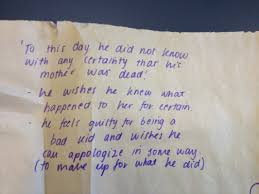 'To this day he did not know
with any certainty that his
mother was dead!'
- he wishes he knew what
happened to her for certain.
- he feels guilty for being a
bad kid and wishes he
can appologize in some way.
(to make up for what he did)